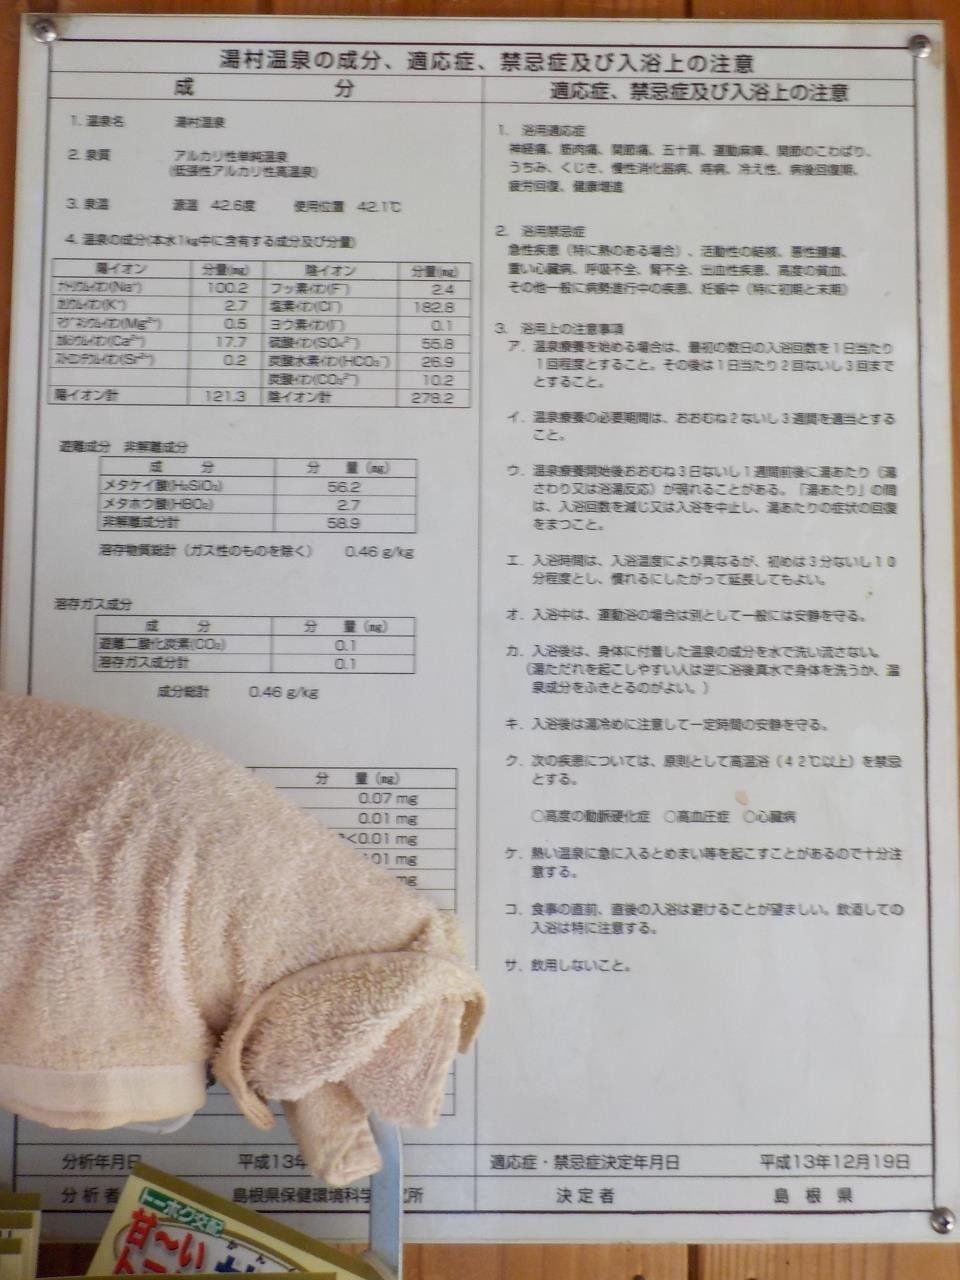 湯村温泉の成分、適応症、禁忌症及び入浴上の注意
成　　　　分
1. 温泉名　湯村温泉
2. 泉質　アルカリ性単純温泉
(低張性アルカリ性高温泉)
3. 泉温　源温　42.6度　使用位置　42.1℃
4. 温泉の成分(本水1kg中に含有する成分及び分量)
陽イオン　分量(mg)　陰イオン　分量(mg)
ナトリウムイオン(Na⁺)　100.2　フッ素イオン(F⁻)　2.4
カリウムイオン(K⁺)　2.7　塩素イオン(Cl⁻)　182.8
マグネシウムイオン(Mg²⁺)　0.5　ヨウ素イオン(I⁻)　0.1
カルシウムイオン(Ca²⁺)　17.7　硫酸イオン(SO₄²⁻)　55.8
ストロンチウムイオン(Sr²⁺)　0.2　炭酸水素イオン(HCO₃⁻)　26.9
炭酸イオン(CO₃²⁻)　10.2
陽イオン計　121.3　陰イオン計　278.2
遊離成分　非解離成分
成　　分　分　量（mg）
メタケイ酸(H₂SiO₃)　56.2
メタホウ酸(HBO₂)　2.7
非解離成分計　58.9
溶存物質総計（ガス性のものを除く）　0.46 g/kg
溶存ガス成分
成　　分　分　量（mg）
遊離二酸化炭素(CO₂)　0.1
溶存ガス成分計　0.1
成分総計　0.46 g/kg
分　量（mg）
0.07 mg
0.01 mg
<0.01 mg
01 mg
mg
分析年月日　平成13年
分析者　島根県保健環境科学　究所
適応症、禁忌症及び入浴上の注意
1.　浴用適応症
神経痛、筋肉痛、関節痛、五十肩、運動麻痺、関節のこわばり、
うちみ、くじき、慢性消化器病、痔病、冷え性、病後回復期、
疲労回復、健康増進
2.　浴用禁忌症
急性疾患（特に熱のある場合）、活動性の結核、悪性腫瘍、
重い心臓病、呼吸不全、腎不全、出血性疾患、高度の貧血、
その他一般に病勢進行中の疾患、妊娠中（特に初期と末期）
3.　浴用上の注意事項
ア．温泉療養を始める場合は、最初の数日の入浴回数を１日当たり
１回程度とすること。その後は１日当たり２回ないし３回まで
とすること。
イ．温泉療養の必要期間は、おおむね２ないし３週間を適当とする
こと。
ウ．温泉療養開始後おおむね３日ないし１週間前後に湯あたり（湯
さわり又は浴湯反応）が現れることがある。「湯あたり」の間
は、入浴回数を減じ又は入浴を中止し、湯あたりの症状の回復
をまつこと。
エ．入浴時間は、入浴温度により異なるが、初めは３分ないし１０
分程度とし、慣れるにしたがって延長してもよい。
オ．入浴中は、運動浴の場合は別として一般には安静を守る。
カ．入浴後は、身体に付着した温泉の成分を水で洗い流さない。
（湯ただれを起こしやすい人は逆に浴後真水で身体を洗うか、温
泉成分をふきとるのがよい。）
キ．入浴後は湯冷めに注意して一定時間の安静を守る。
ク．次の疾患については、原則として高温浴（４２℃以上）を禁忌
とする。
○高度の動脈硬化症　○高血圧症　○心臓病
ケ．熱い温泉に急に入るとめまい等を起こすことがあるので十分注
意する。
コ．食事の直前、直後の入浴は避けることが望ましい。飲酒しての
入浴は特に注意する。
サ．飲用しないこと。
適応症・禁忌症決定年月日　平成13年12月19日
決定者　島根県
トーホク交配
甘〜い